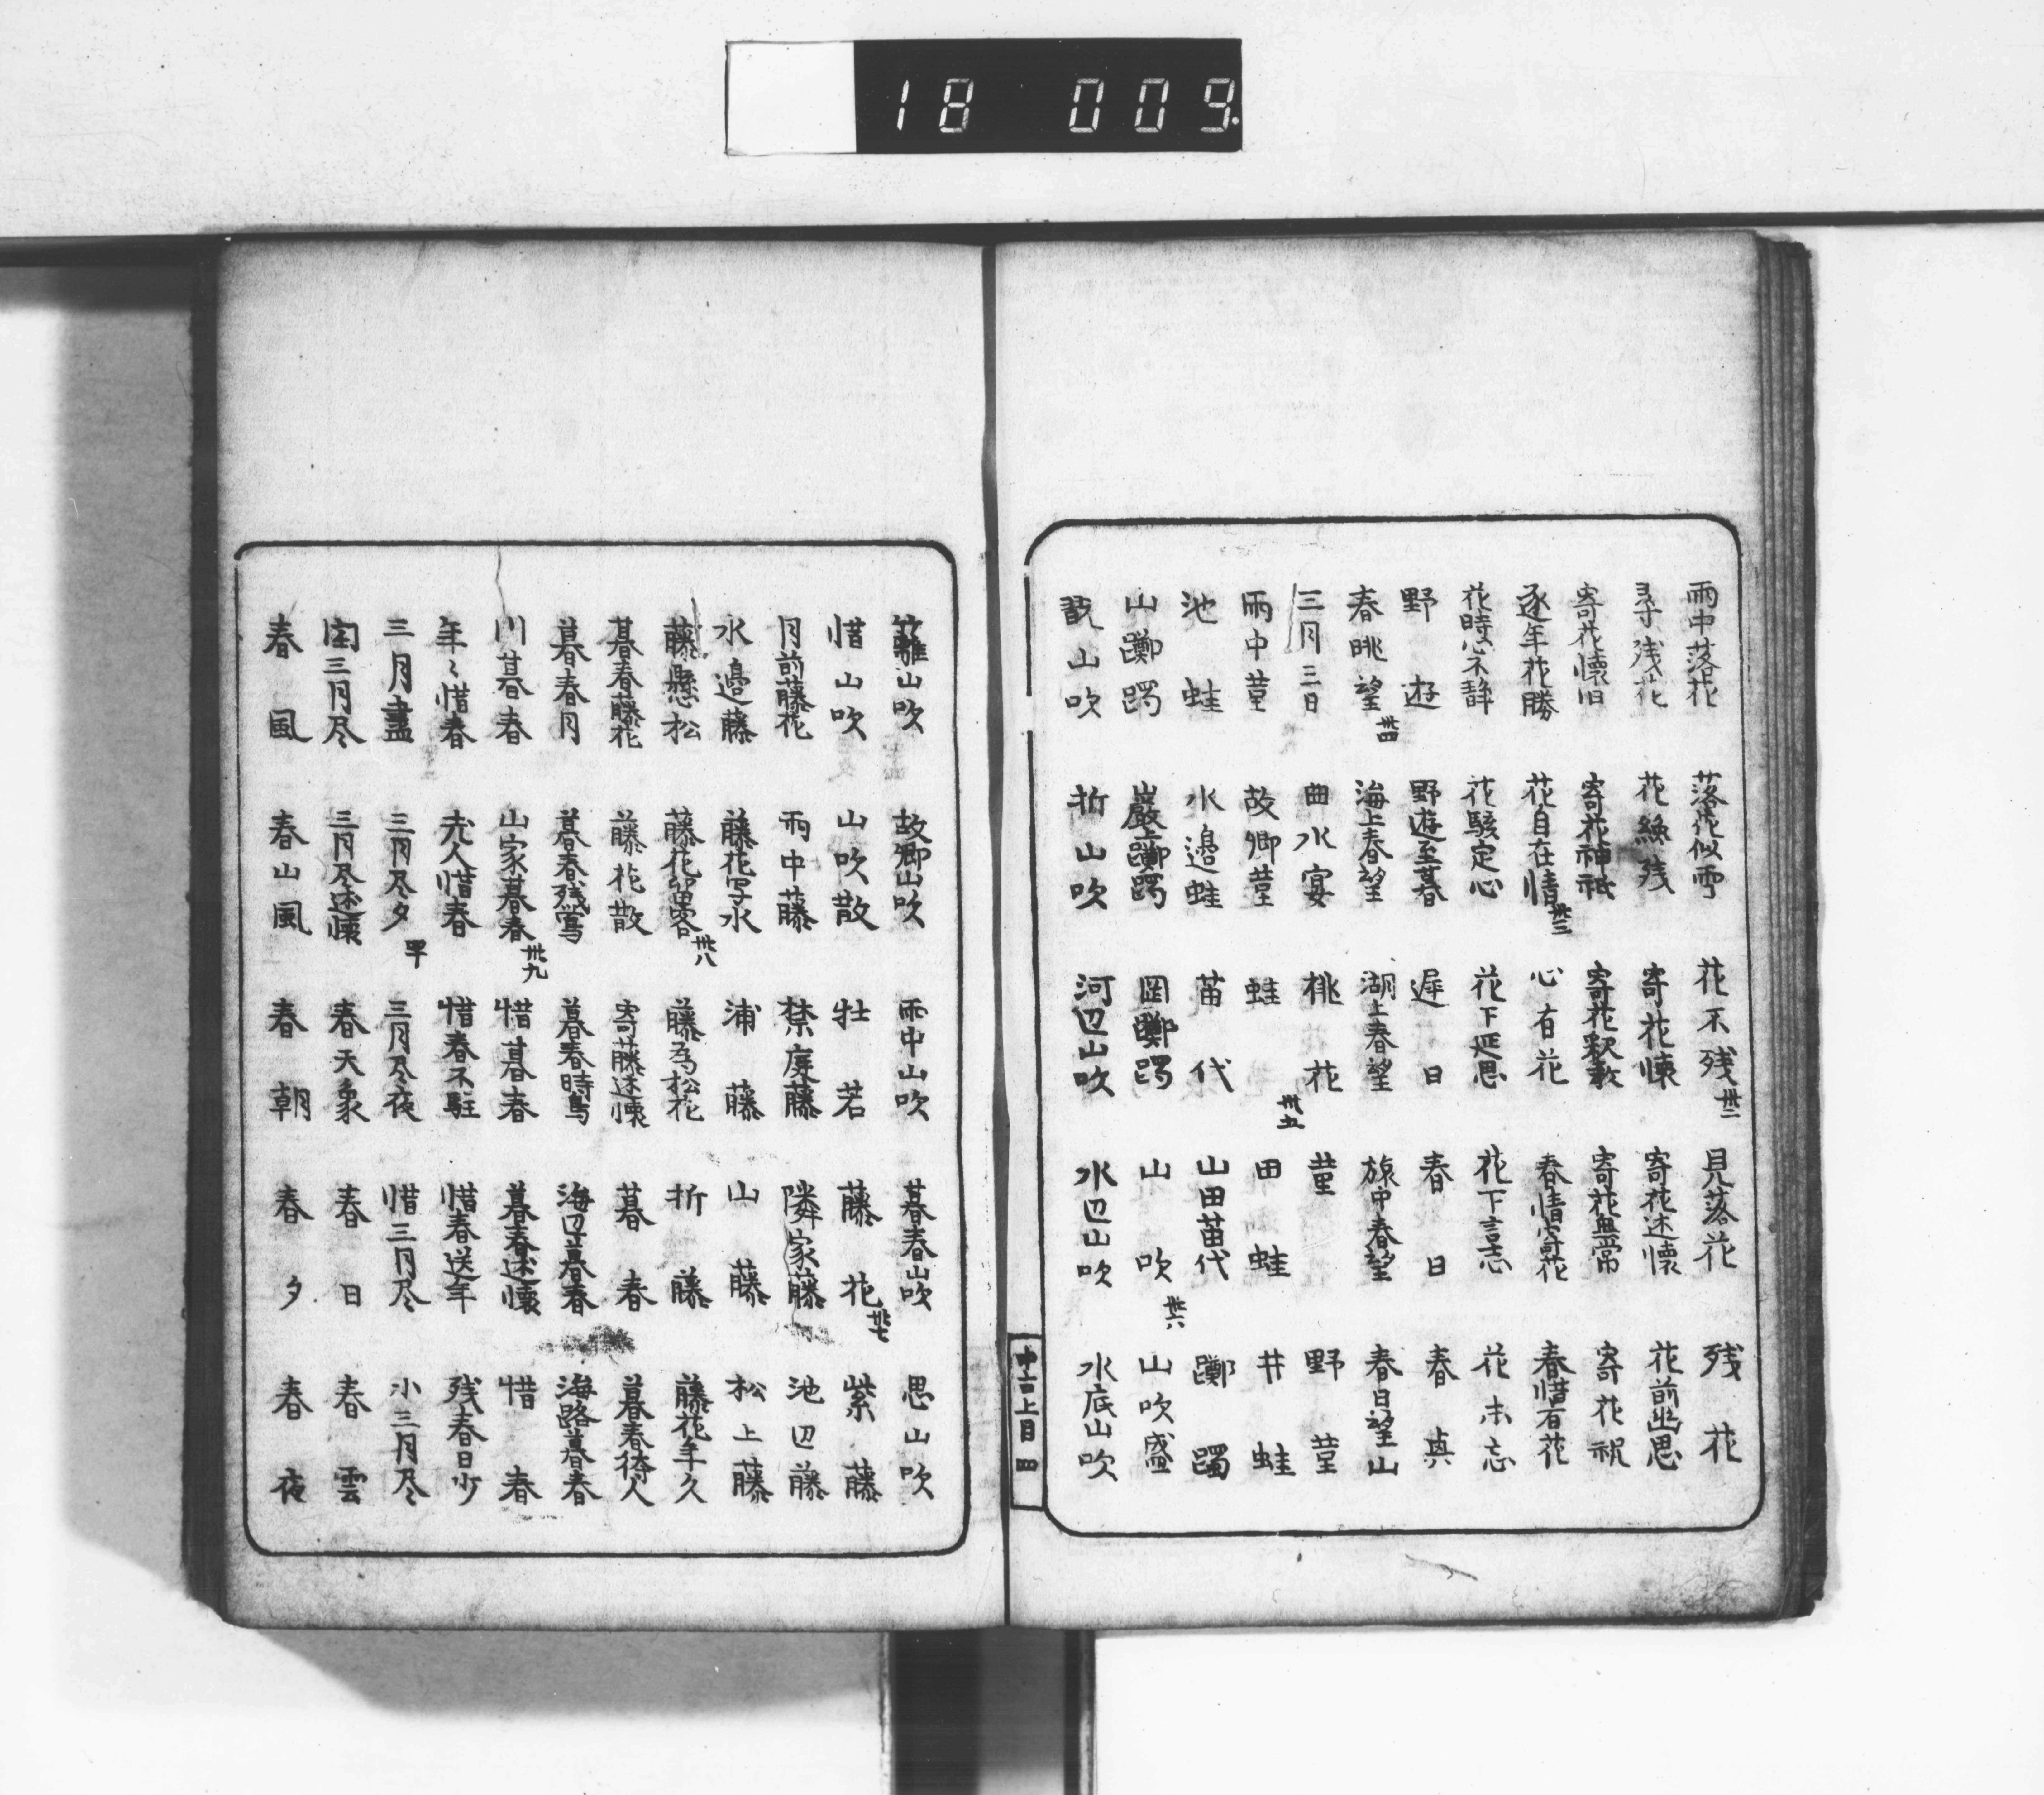 18 009
雨中落花 落花似雪 花不残 卅二 見落花 残花
尋残花 花纔残 寄花懐 寄花述懐 花前出思
寄花懐旧 寄花神祇 寄花釈教 寄花無常 寄花祝
逐年花勝 花自在情 卅三 心有花 春情寄花 春惜有花
花時心不静 花駭定心 花下延思 花下言志 花未忘
野遊 野遊至暮 遅日 春日 春興
春眺望 卅四 海上春望 湖上春望 旅中春望 春日望山
三月三日 曲水宴 桃花 菫 野菫
雨中菫 故郷菫 蛙 卅五 田蛙 井蛙
池蛙 水邉蛙 苗代 山田苗代 躑躅
山躑躅 巌上躑躅 岡躑躅 山吹 卅六 山吹盛
翫山吹 折山吹 河辺山吹 水辺山吹 水底山吹
中古上目 四
籬山吹 故郷山吹 雨中山吹 暮春山吹 思山吹
惜山吹 山吹散 牡若 藤花 卅七 紫藤
月前藤花 雨中藤 禁庭藤 隣家藤 池辺藤
水邉藤 藤花写水 浦藤 山藤 松上藤
藤懸松 藤花留客 卅八 藤為松花 折藤 藤花年久
暮春藤花 藤花散 寄藤述懐 暮春 暮春待人
暮春月 暮春残鶯 暮春時鳥 海辺暮春 海路暮春
川暮春 山家暮春 卅九 惜暮春 暮春述懐 惜春
年〻惜春 老人惜春 惜春不駐 惜春送年 残春日少
三月盡 三月尽夕 四十 三月尽夜 惜三月尽 小三月尽
閏三月尽 三月尽述懐 春天象 春日 春雲
春風 春山風 春朝 春夕 春夜